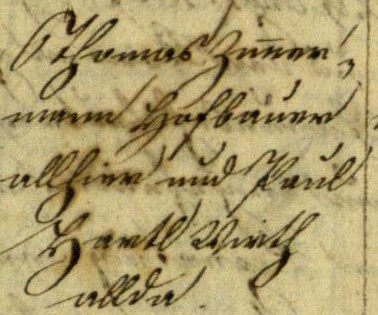 Thomas Zim̅er-
mann Hofbauer
allhier und Paul
Hartl Wirth
allda.